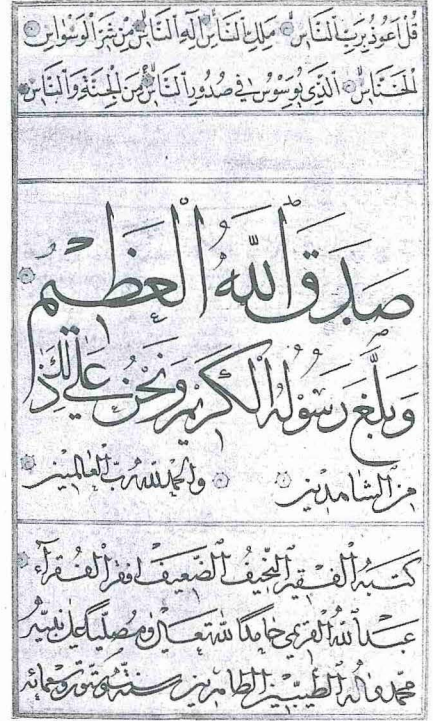 قُلْ أَعُوذُ بِرَبِّ النَّاسِ مَلِكِ النَّاسِ إِلَٰهِ النَّاسِ مِنْ شَرِّ الْوَسْوَاسِ
الْخَنَّاسِ الَّذِي يُوَسْوِسُ فِي صُدُورِ النَّاسِ مِنَ الْجِنَّةِ وَالنَّاسِ
صَدَقَ اللّٰهُ الْعَظِيمُ
وَبَلَّغَ رَسُولُهُ الْكَرِيمُ وَنَحْنُ عَلَىٰ ذَٰلِكَ
مِنَ الشَّاهِدِينَ وَالْحَمْدُ لِلّٰهِ رَبِّ الْعَالَمِينَ
كَتَبَهُ الْفَقِيرُ النَّحِيفُ الضَّعِيفُ أَفْقَرُ الْفُقَرَاءِ
عَبْدُ اللّٰهِ الْقَرِيمِي حَامِدًا لِلّٰهِ تَعَالَى وَمُصَلِّيًا عَلَى نَبِيِّهِ
مُحَمَّدٍ وَآلِهِ الطَّيِّبِينَ الطَّاهِرِينَ سنة